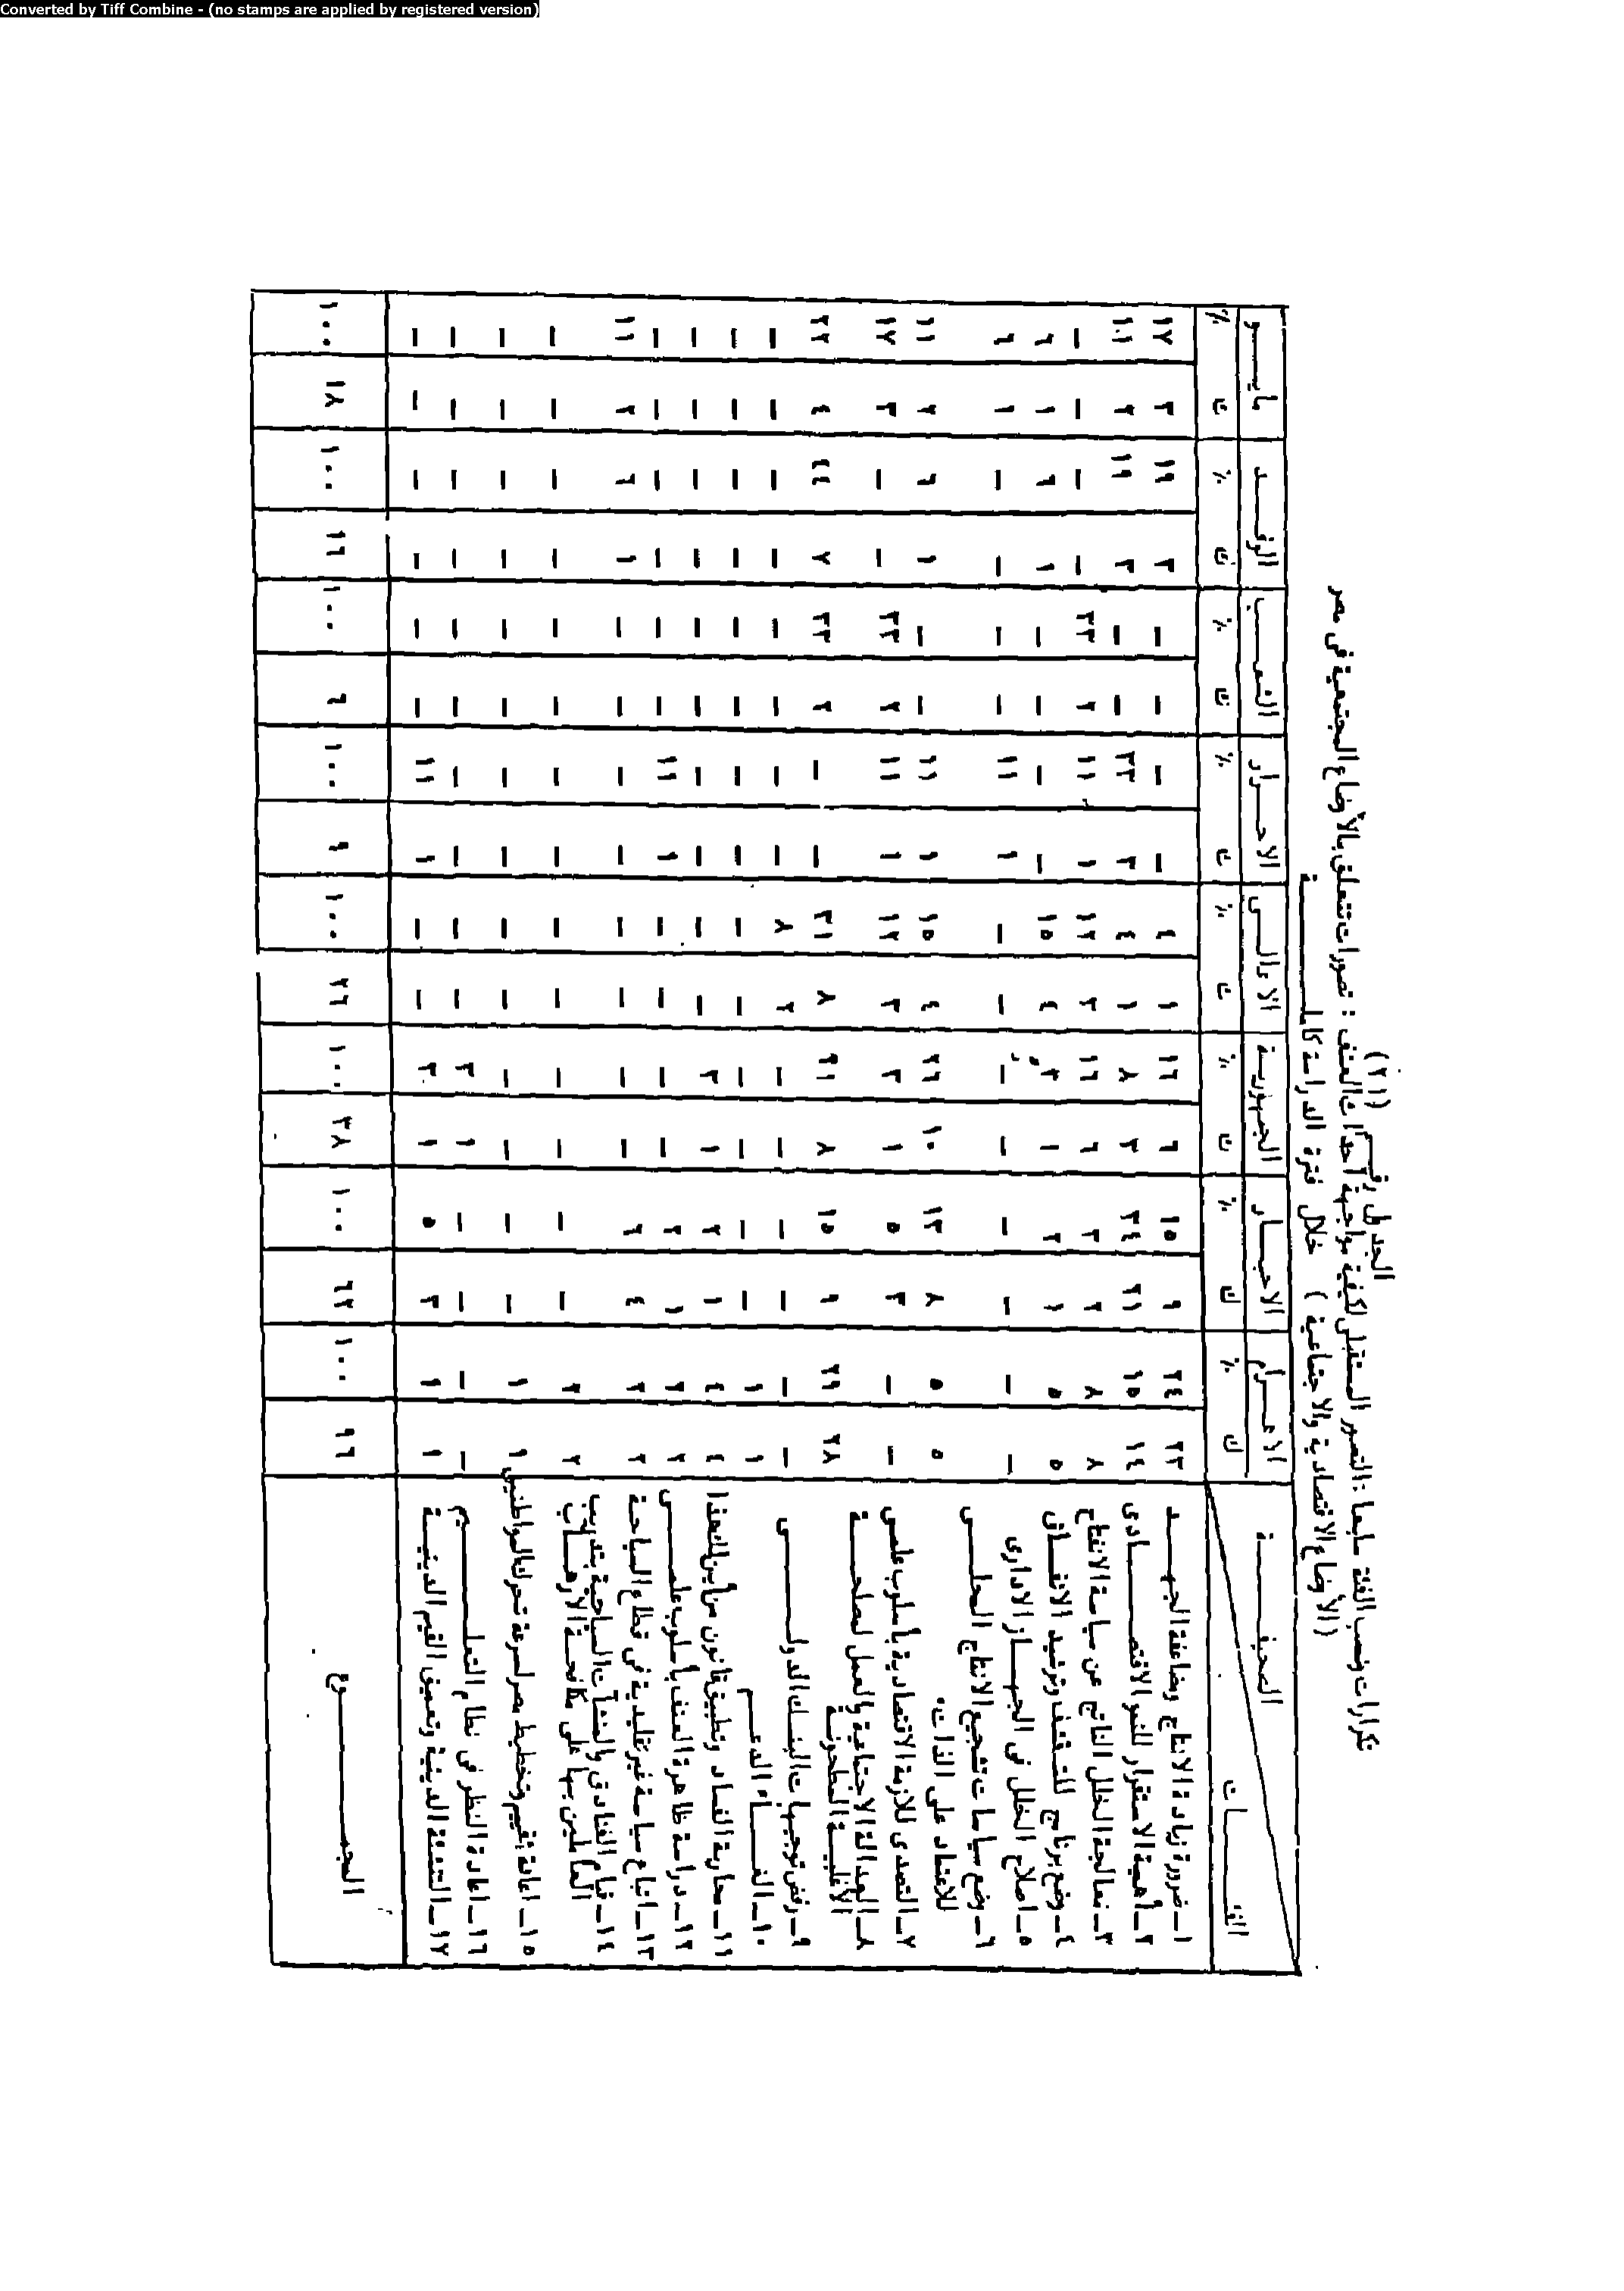 Converted by Tiff Combine - (no stamps are applied by registered version)
الجدول رقم (٢١)
تكرارات ونسب الفئة سابعا : التصور المستقبلى لكيفية مواجهة أحداث العنف : تصورات تتعلق بالأوضاع المجتمعية فى مصر
( الأوضاع الاقتصادية والاجتماعية ) خلال فترة الدراسة كاملة
الصحيفة الاهرام الاخبار الجمهورية الاهالى الاحرار الشعب الوفد مايو
الفئات ك ٪ ك ٪ ك ٪ ك ٪ ك ٪ ك ٪ ك ٪ ك ٪
١ـ ضرورة زيادة الانتاج ومضاعفة الجهد ٢٣ ٢٤ ٩ ١٥ ٦ ١٦ ١ ٤ — — — — ٣ ١٩ ٣ ١٧
٢ـ أهمية الاستقرار للنمو الاقتصادى ١٤ ١٥ ٢١ ٣٤ ٣ ٨ ١ ٤ ٣ ٣٣ — — ٣ ١٩ ٢ ١١
٣ـ معالجة الخلل الناتج عن سياسة الانفتاح ٨ ٨ ٢ ٣ ٦ ١٦ ٣ ١٢ ١ ١١ ٢ ٣٣ — — — —
٤ـ وضع برنامج للتقشف وترشيد الانفاق ٥ ٥ ١ ٢ ١ ٣ ٤ ١٥ — — — — ١ ٦ ١ ٦
٥ـ اصلاح الخلل فى الجهاز الادارى — — — — — — — — ١ ١١ — — — — ١ ٦
٦ـ وضع سياسات تشجيع الانتاج المحلى
للاعتماد على الذات. ٥ ٥ ٨ ١٣ ١٠ ٢٦ ٤ ١٥ ١ ١١ — — ١ ٦ ٢ ١١
٧ـ التصدى للازمة الاقتصادية بأسلوب علمى — — ٣ ٥ ١ ٣ ٣ ١٢ ١ ١١ ٢ ٣٣ — — ٣ ١٧
٨ـ العدالة الاجتماعية والعمل لمصلحة
الأغلبية المطحونة ٢٨ ٢٩ ٩ ١٥ ٨ ٢١ ٨ ٣١ — — ٢ ٣٣ ٧ ٤٤ ٤ ٢٢
٩ـ رفض توجيهات البنك الدولى — — — — — — ٢ ٨ — — — — — — — —
١٠ـ الغاء الدعم ١ ١ — — — — — — — — — — — — — —
١١ـ محاربة الفساد وتطبيق قانون من أين لك هذا ٤ ٤ ١ ٢ ١ ٣ — — — — — — — — — —
١٢ـ دراسة ظاهرة العنف بأسلوب علمى ٢ ٢ ١ ٢ — — — — ١ ١١ — — — — — —
١٣ـ اتباع سياسة غير تقليدية فى قطاع السياحة ٢ ٢ ٤ ٦ — — — — — — — — ١ ٦ ٢ ١١
١٤ـ قيام الفنادق والمنشآت السياحية بتدريب
العاملين بها على مكافحة الارهاب ٢ ٢ — — — — — — — — — — — — — —
١٥ـ اعادة تقييم وتخطيط مصر لسرعة تحرك المواطنين ١ ١ — — — — — — — — — — — — — —
١٦ـ اعادة النظر فى نظام التعليم — — — — ١ ٣ — — — — — — — — — —
١٧ـ التنشئة الدينية وتعميق القيم الدينية ١ ١ ٣ ٥ ١ ٣ — — ١ ١١ — — — — — —
المجموع ٩٦ ١٠٠ ٦٢ ١٠٠ ٣٨ ١٠٠ ٢٦ ١٠٠ ٩ ١٠٠ ٦ ١٠٠ ١٦ ١٠٠ ١٨ ١٠٠